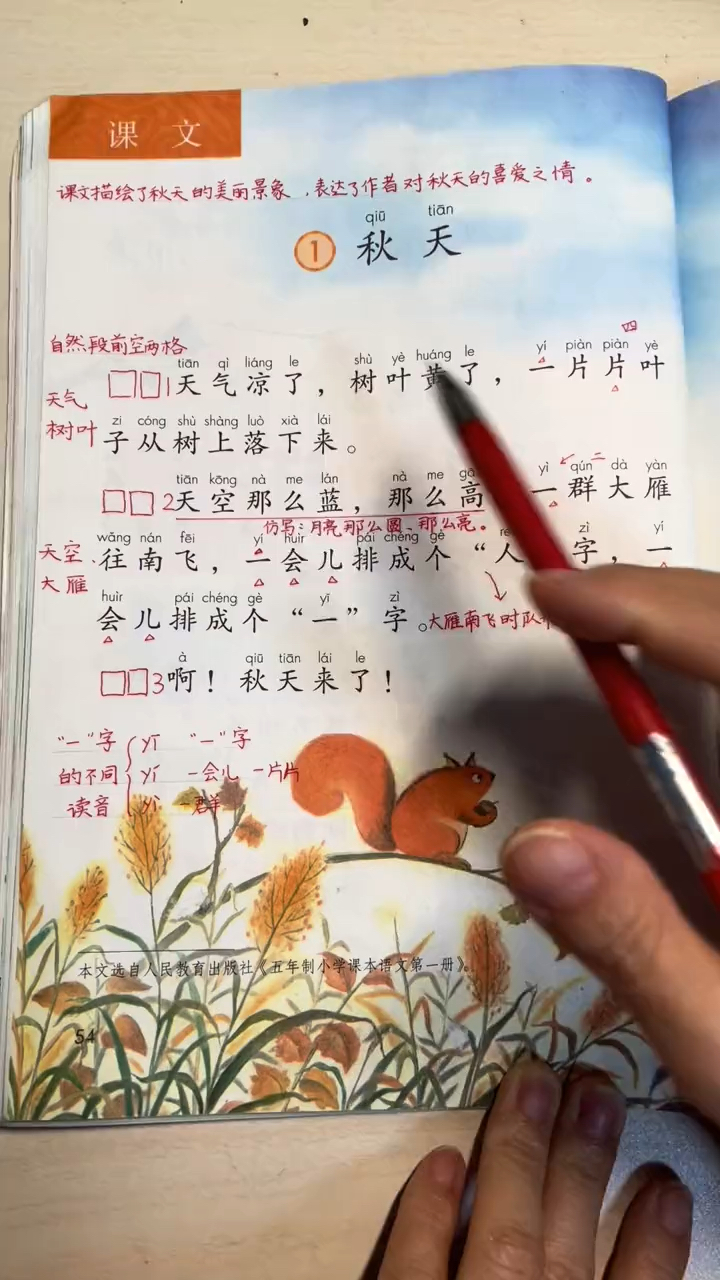 课 文
课文描绘了秋天的美丽景象,表达了作者对秋天的喜爱之情。
qiū tiān
1 秋 天
自然段前空两格
四
tiān qì liáng le shù yè huáng le yí piàn piàn yè
天气
□□1天气凉了,树叶黄了,一片片叶
zi cóng shù shàng luò xià lái
树叶
子从树上落下来。
二
tiān kōng nà me lán nà me yì qún dà yàn
□□2天空那么蓝,那么高 一群大雁
仿写:月亮那么圆、那么亮。
wǎng nán fēi yí huìr pái chéng gè zì yí
天空、
大雁
往南飞,一会儿排成个“人 字,一
huìr pái chéng gè yī zì
会儿排成个“一”字。
大雁南飞时队
à qiū tiān lái le
□□3啊!秋天来了!
“一”字 yī “一”字
的不同 yí 一会儿 一片片
读音 yì 一群
本文选自人民教育出版社《五年制小学课本语文第一册》。
54